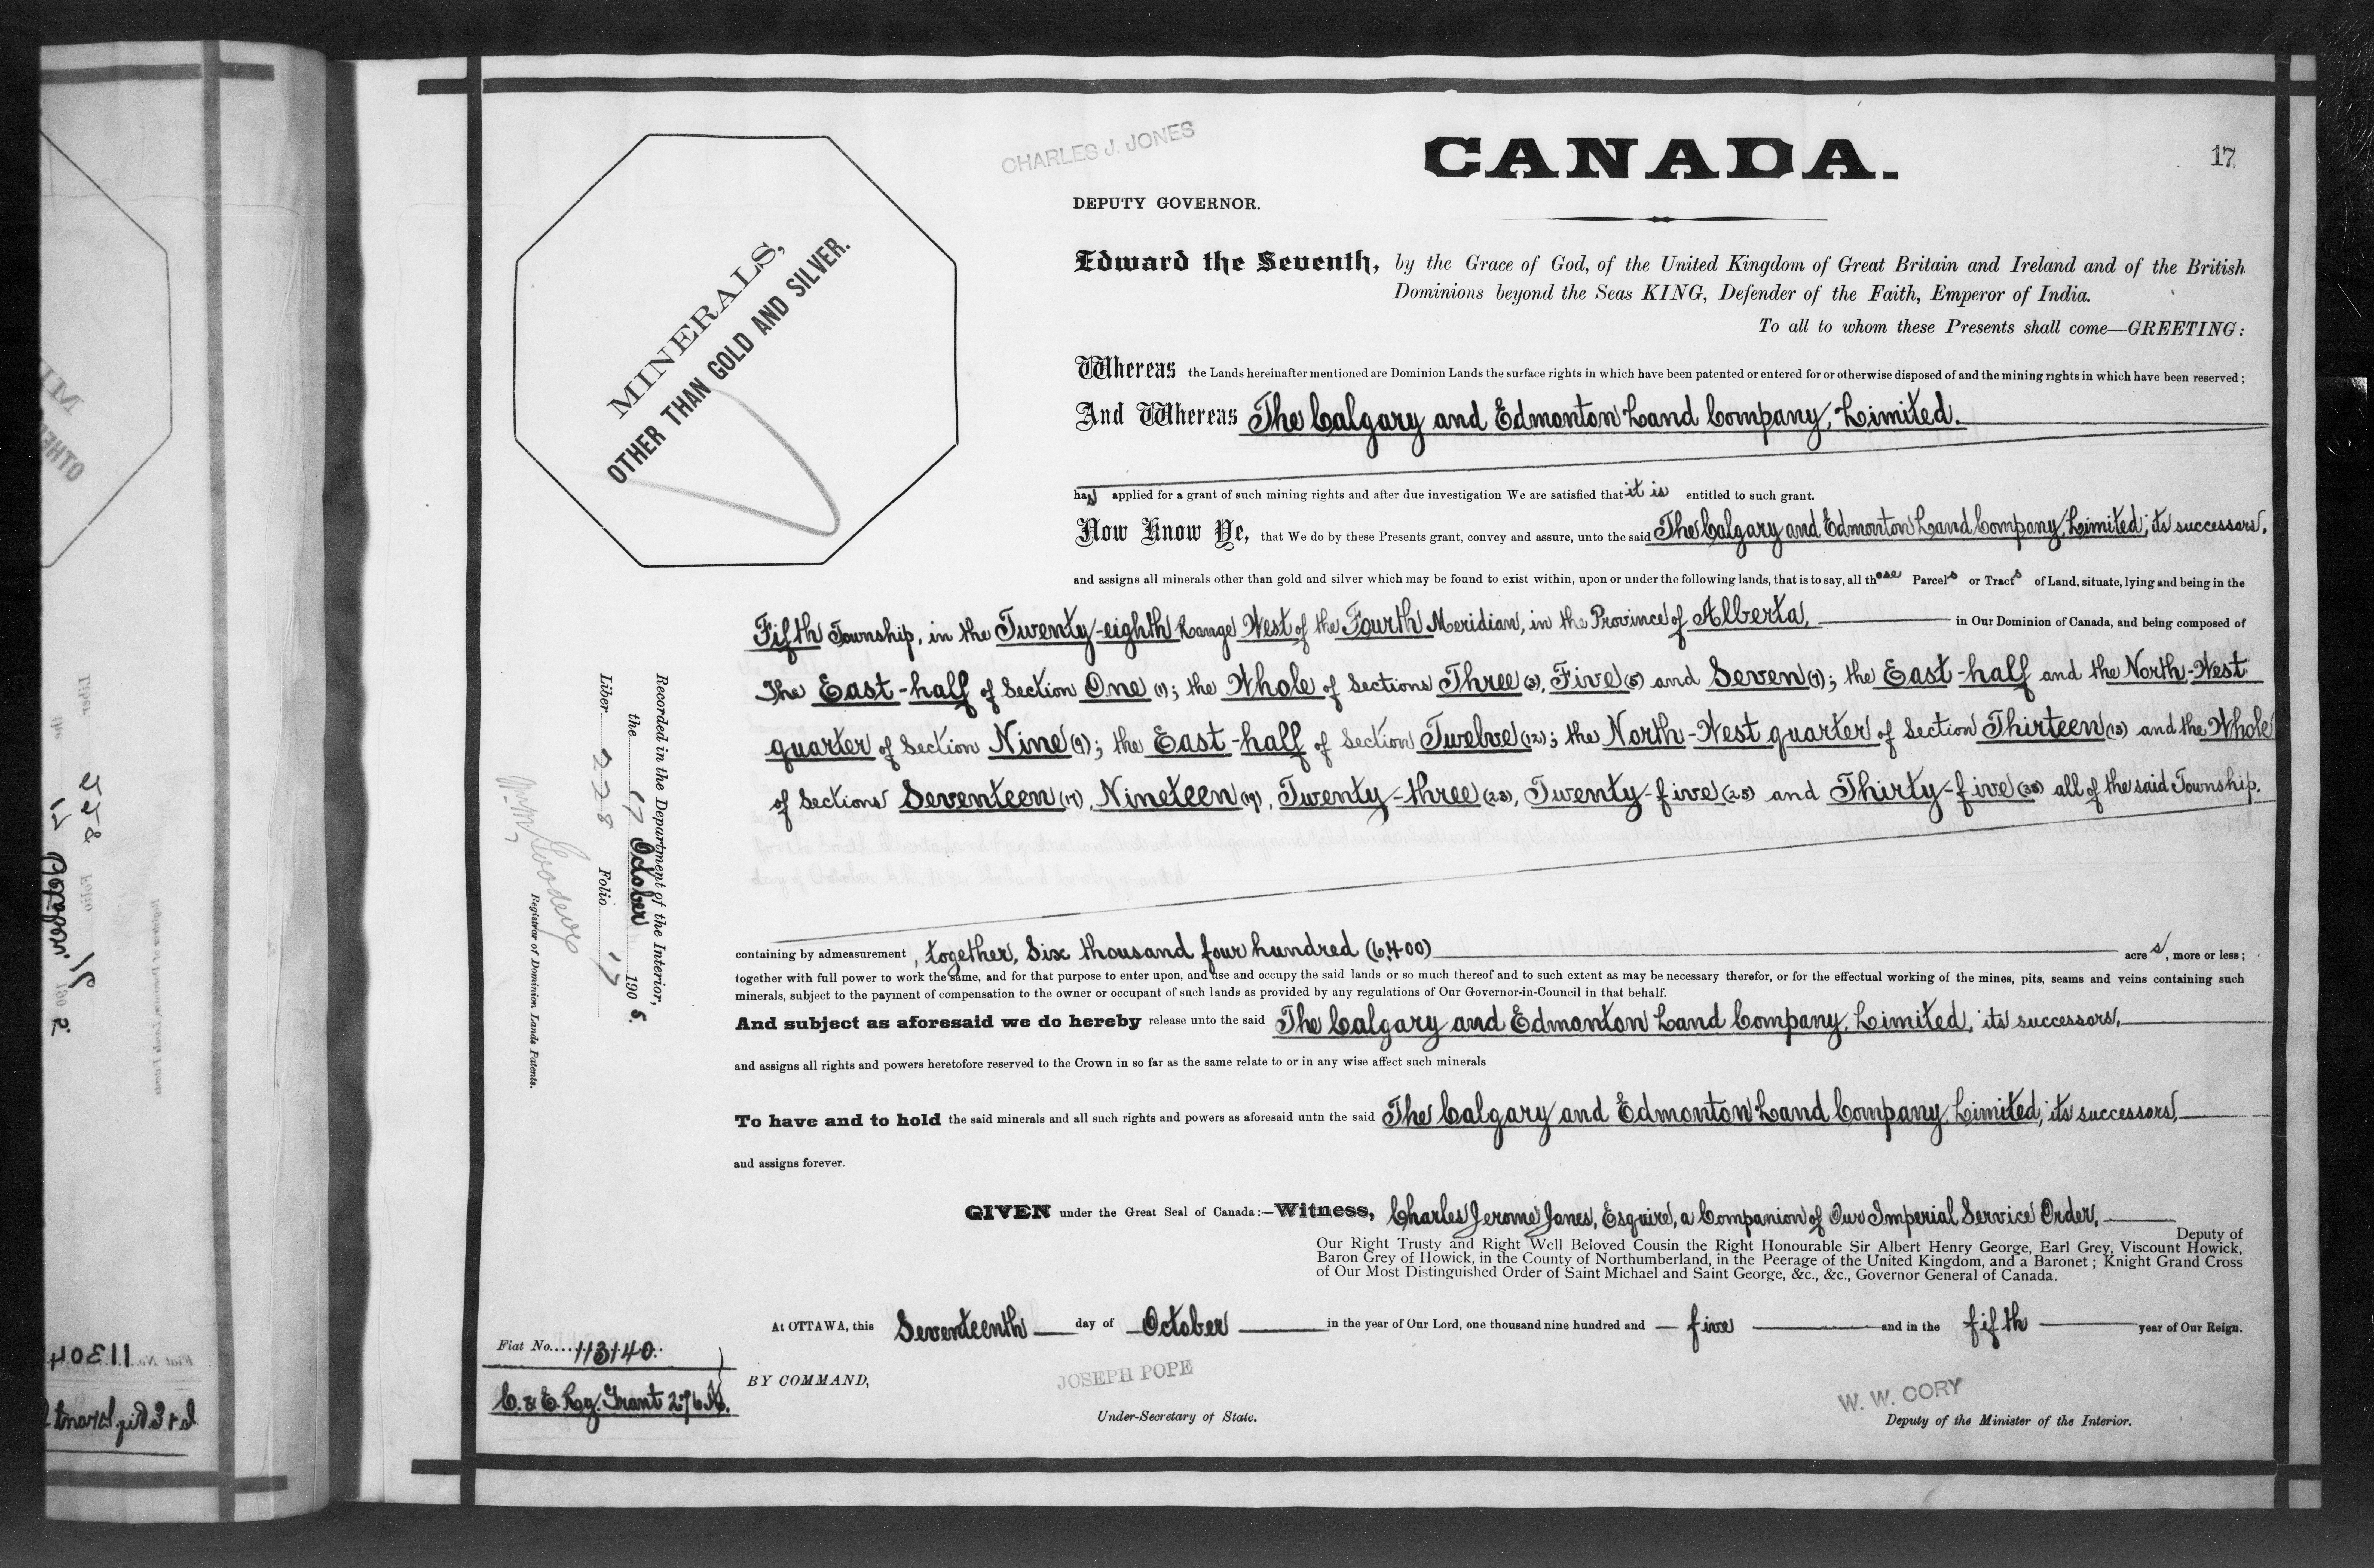 CHARLES J. JONES
CANADA.
17
DEPUTY GOVERNOR.
MINERALS,
OTHER THAN GOLD AND SILVER.
Edward the Seventh, by the Grace of God, of the United Kingdom of Great Britain and Ireland and of the British
Dominions beyond the Seas KING, Defender of the Faith, Emperor of India.
To all to whom these Presents shall come—GREETING:
Whereas the Lands hereinafter mentioned are Dominion Lands the surface rights in which have been patented or entered for or otherwise disposed of and the mining rights in which have been reserved;
And Whereas The Calgary and Edmonton Land Company, Limited.
has applied for a grant of such mining rights and after due investigation We are satisfied that it is entitled to such grant.
Now Know Ye, that We do by these Presents grant, convey and assure, unto the said The Calgary and Edmonton Land Company, Limited, its successors,
and assigns all minerals other than gold and silver which may be found to exist within, upon or under the following lands, that is to say, all those Parcels or Tracts of Land, situate, lying and being in the
Fifth Township, in the Twenty-eighth Range West of the Fourth Meridian, in the Province of Alberta, in Our Dominion of Canada, and being composed of
The East-half of Section One (1); the Whole of Sections Three (3), Five (5) and Seven (7); the East-half and the North-West
quarter of Section Nine (9); the East-half of Section Twelve (12); the North-West quarter of Section Thirteen (13) and the Whole
of Sections Seventeen (17), Nineteen (19), Twenty-three (23), Twenty-five (25) and Thirty-five (35) all of the said Township.
Recorded in the Department of the Interior,
the 17 October 1905.
Liber 228 Folio 17
Registrar of Dominion Lands Patents.
containing by admeasurement, together, Six thousand four hundred (6,400) acres, more or less;
together with full power to work the same, and for that purpose to enter upon, and use and occupy the said lands or so much thereof and to such extent as may be necessary therefor, or for the effectual working of the mines, pits, seams and veins containing such
minerals, subject to the payment of compensation to the owner or occupant of such lands as provided by any regulations of Our Governor-in-Council in that behalf.
And subject as aforesaid we do hereby release unto the said The Calgary and Edmonton Land Company, Limited, its successors,
and assigns all rights and powers heretofore reserved to the Crown in so far as the same relate to or in any wise affect such minerals
To have and to hold the said minerals and all such rights and powers as aforesaid untn the said The Calgary and Edmonton Land Company, Limited, its successors,
and assigns forever.
GIVEN under the Great Seal of Canada:—Witness, Charles Jerome Jones, Esquire, a Companion of Our Imperial Service Order,
Deputy of
Our Right Trusty and Right Well Beloved Cousin the Right Honourable Sir Albert Henry George, Earl Grey, Viscount Howick,
Baron Grey of Howick, in the County of Northumberland, in the Peerage of the United Kingdom, and a Baronet; Knight Grand Cross
of Our Most Distinguished Order of Saint Michael and Saint George, &c., &c., Governor General of Canada.
At OTTAWA, this Seventeenth day of October in the year of Our Lord, one thousand nine hundred and five and in the fifth year of Our Reign.
Fiat No....113140..
C. & E. Ry. Grant
BY COMMAND,
JOSEPH POPE
Under-Secretary of State.
W. W. CORY
Deputy of the Minister of the Interior.